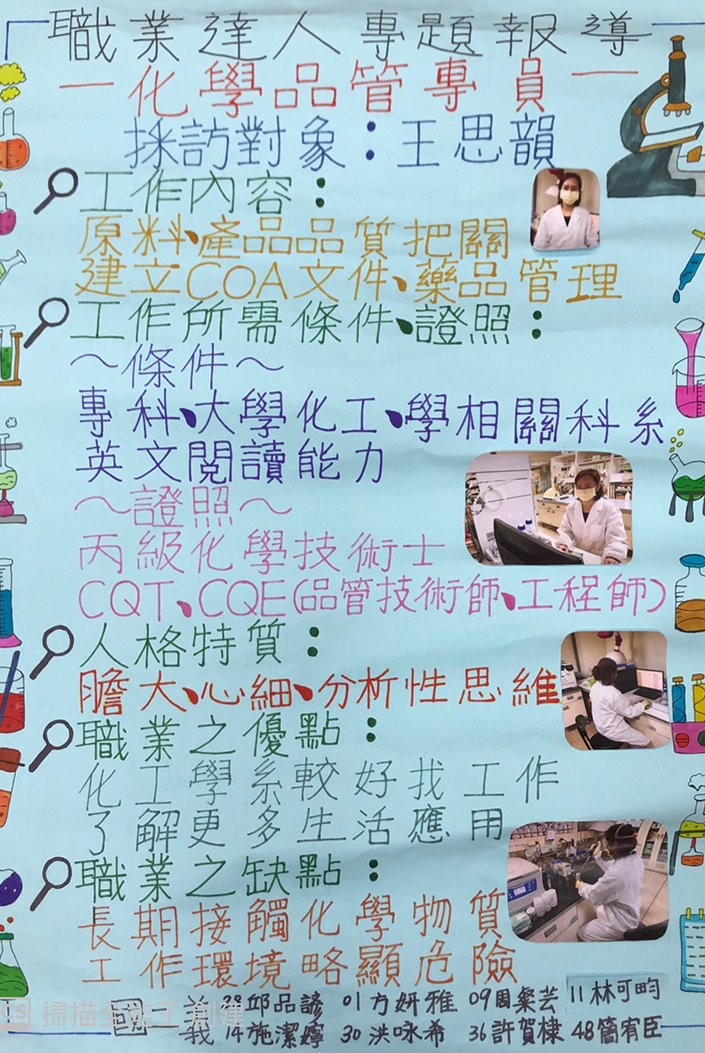 職業達人專題報導
—化學品管專員—
採訪對象:王思韻
工作內容:
原料、產品品質把關
建立COA文件、藥品管理
工作所需條件、證照:
～條件～
專科、大學化工、學相關科系
英文閱讀能力
～證照～
丙級化學技術士
CQT、CQE(品管技術師、工程師)
人格特質:
膽大、心細、分析性思維
職業之優點:
化工學系較好找工作
了解更多生活應用
職業之缺點:
長期接觸化學物質
工作環境略顯危險
國一義 28邱品諺 01方妍雅 09周粲芸 11林可畇
14施潔嬣 30洪咏希 36許賀棣 48簡宥臣
CS 掃描全能王 創建